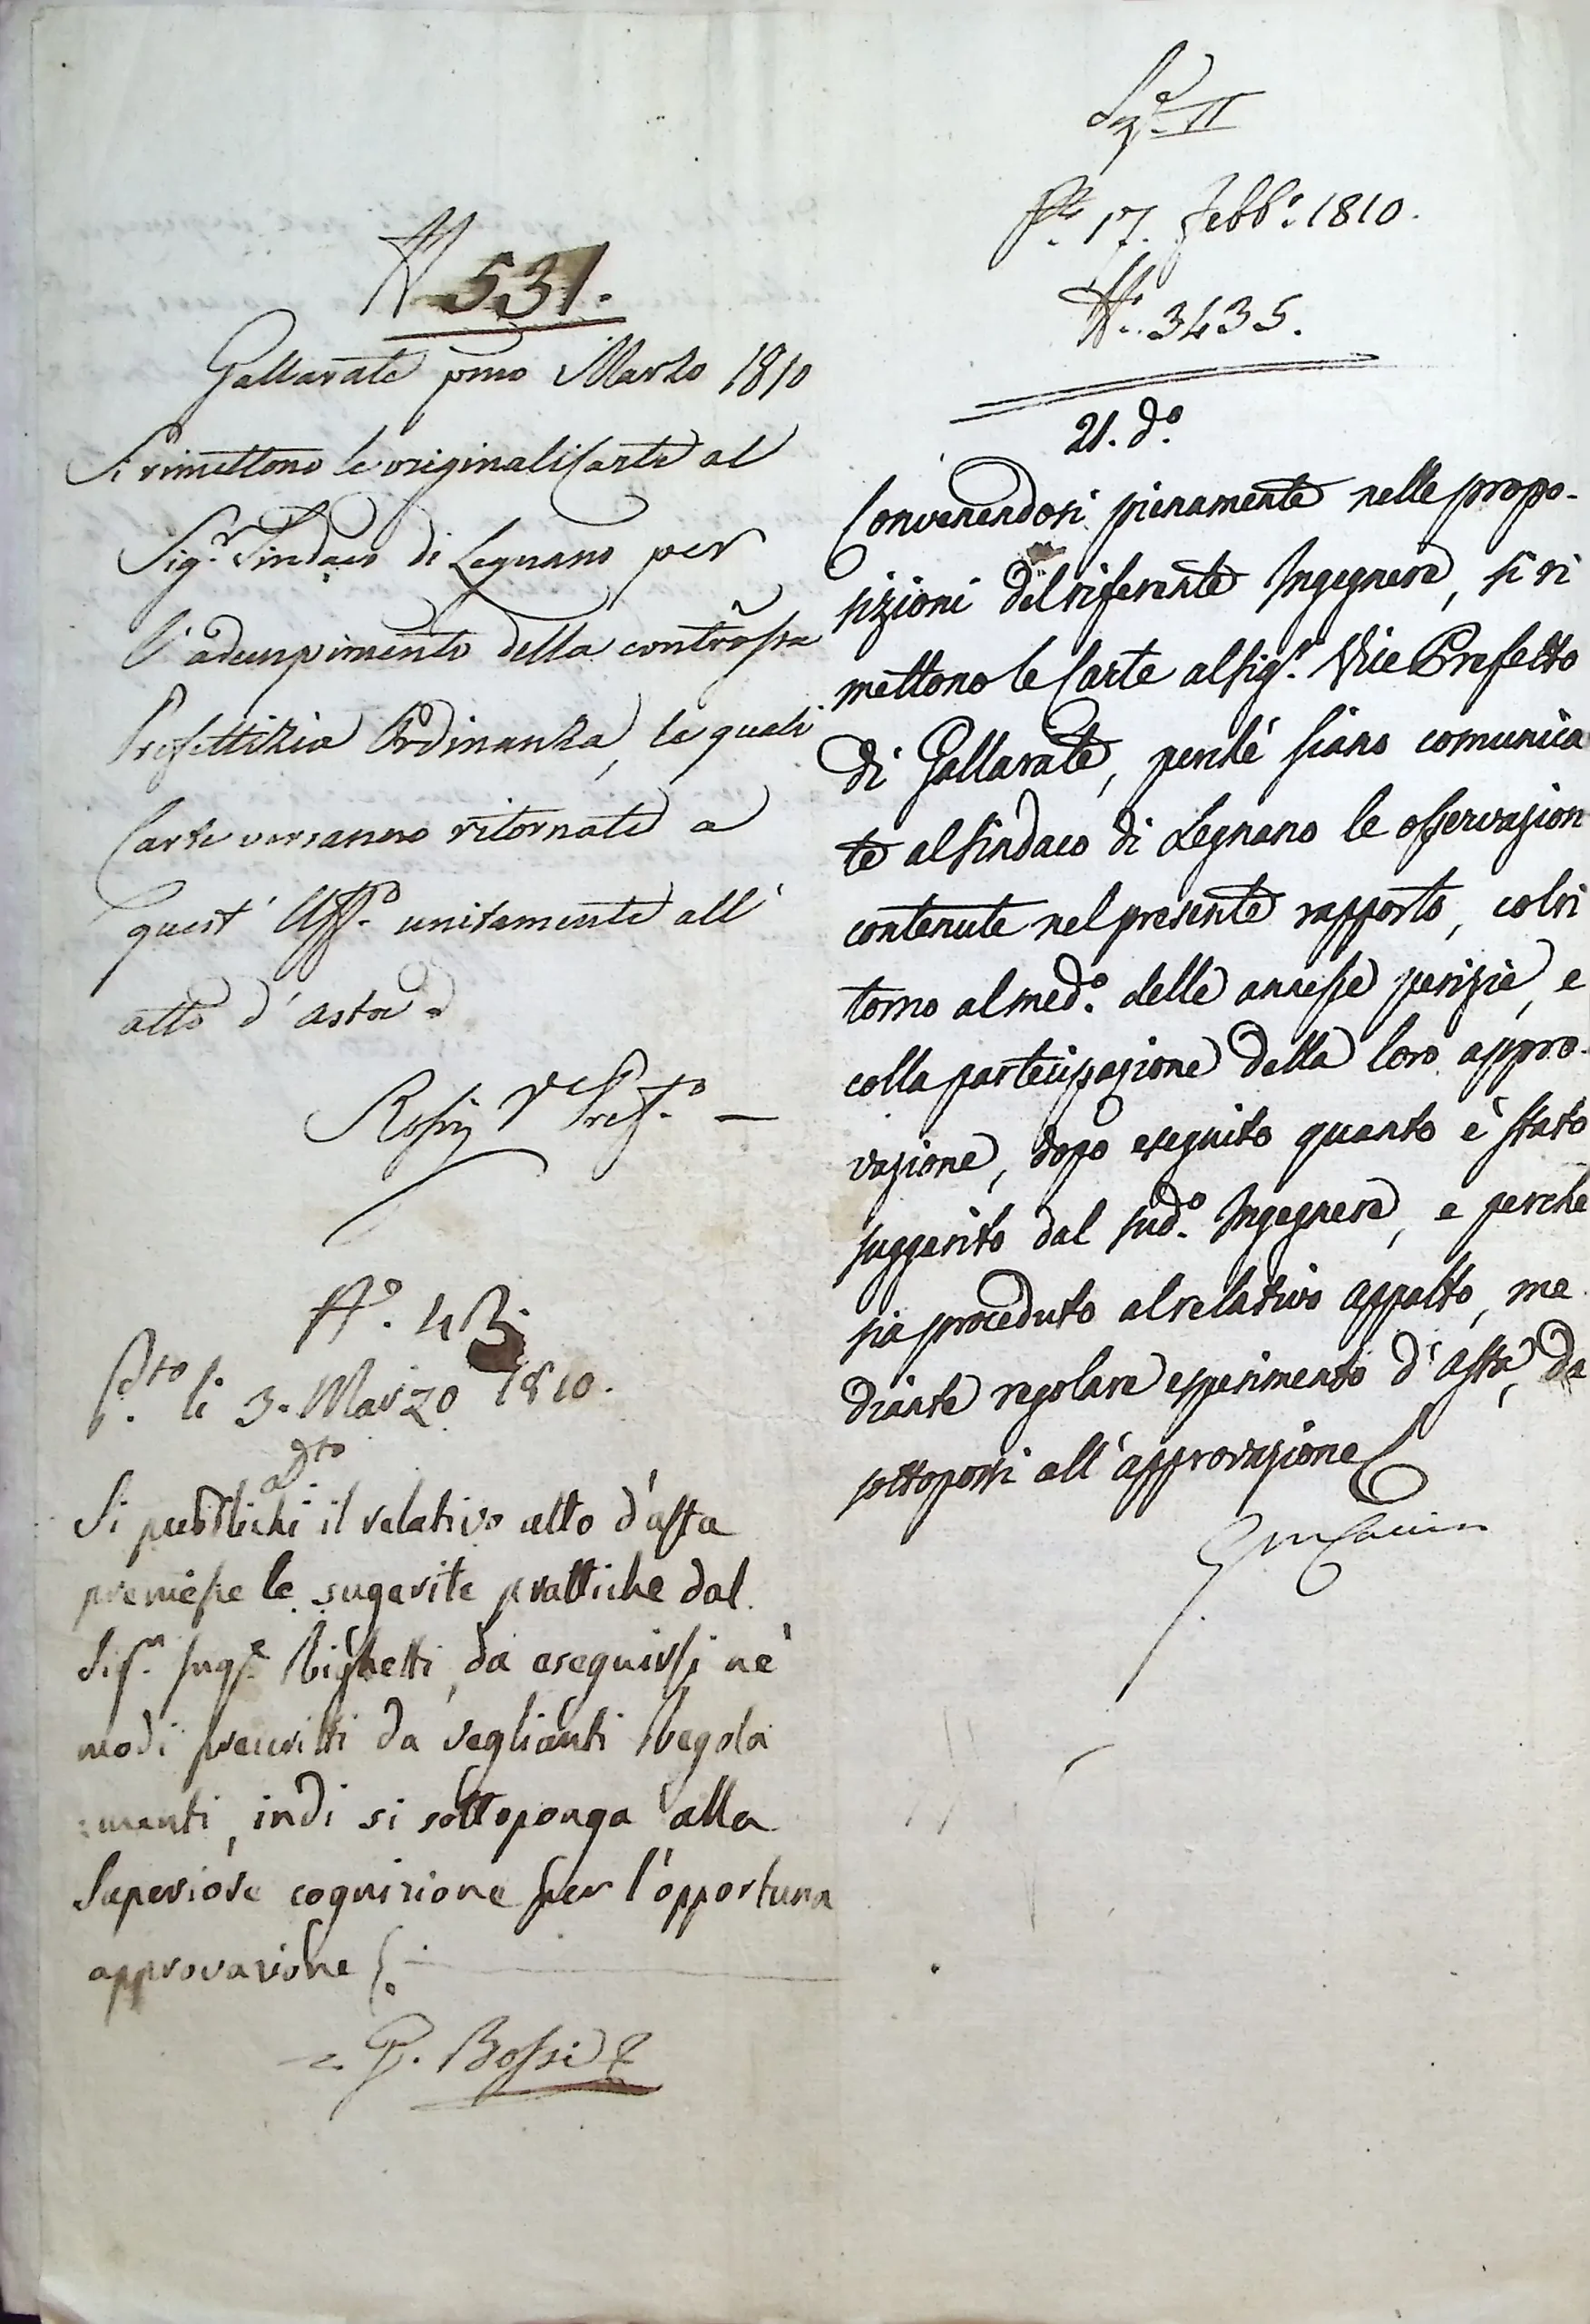 N 531.
Gallarate pmo Marzo 1810
Si rimettono le originali Carte al
Sig.r Sindaco di Legnano per
l'adempimento della controssta
Prefettizia Ordinanza, le quali
Carte verranno ritornate a
quest' Uff.o unitamente all'
atto d'asta
V.e Pref.o —
N.o 43.
P.dto li 3. Marzo 1810.
dto
Si pubblichi il relativo atto d'asta
premesse le sugerite prattiche dal
Sig.r Ing.e Righetti, da eseguirsi ne'
modi prescritti da veglianti Regola
:menti, indi si sottoponga alla
Superiore cognizione per l'opportuna
approvazione
G. Bossi
Sez.e II
P.to 17. Febb.o 1810.
N.o 3435.
21. d.o
Convenendosi pienamente nelle propo-
sizioni del riferente Ingegnere, si ri
mettono le Carte al Sig.r Vice Prefetto
di Gallarate, perché siano comunica
te al Sindaco di Legnano le osservazion
contenute nel presente rapporto, col ri
torno al med.o delle annesse perizie, e
colla partecipazione della loro appro-
vazione, dopo eseguito quanto è stato
suggerito dal sud.o Ingegnere, e perche
sia proceduto al relativo appalto, me
diante regolare esperimento d'asta, da
sottoporsi all'approvazione